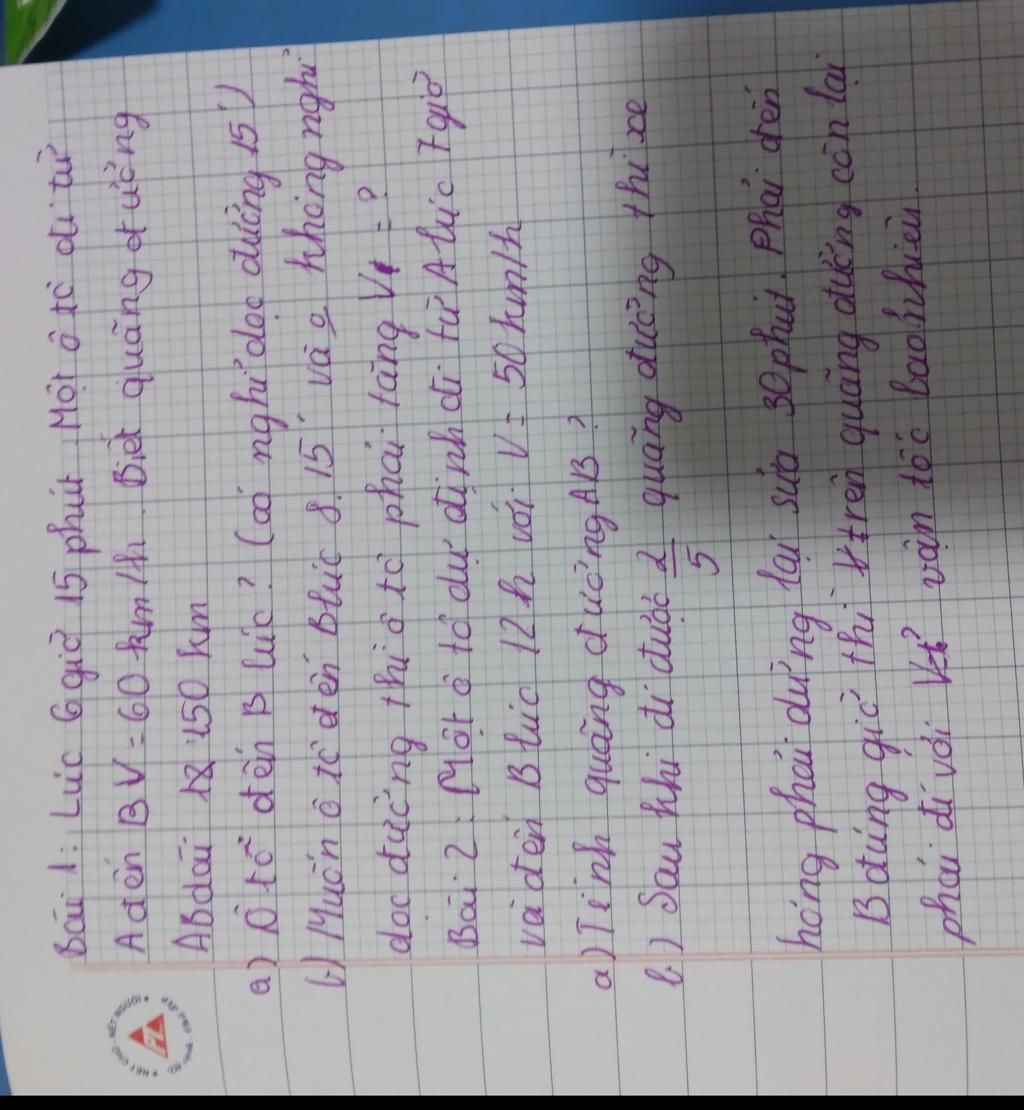 Bài 1: Lúc 6 giờ 15 phút. Một ô tô đi từ
A đến B V = 60 km/h. Biết quãng đường
AB dài 150 km
a) Ô tô đến B lúc? (có nghỉ dọc đường 15')
b) Muốn ô tô đến B lúc 8.15' và không nghỉ
dọc đường thì ô tô phải tăng V = ?
Bài 2: Một ô tô dự định đi từ A lúc 7 giờ
và đến B lúc 12 h với V = 50 km/h
a) Tính quãng đường AB?
b) Sau khi đi được 2/5 quãng đường thì xe
hỏng phải dừng lại sửa 30 phút. Phải đến
B đúng giờ thì trên quãng đường còn lại
phải đi với vận tốc bao nhiêu.
NÉT CHỮ - NẾT NGƯỜI